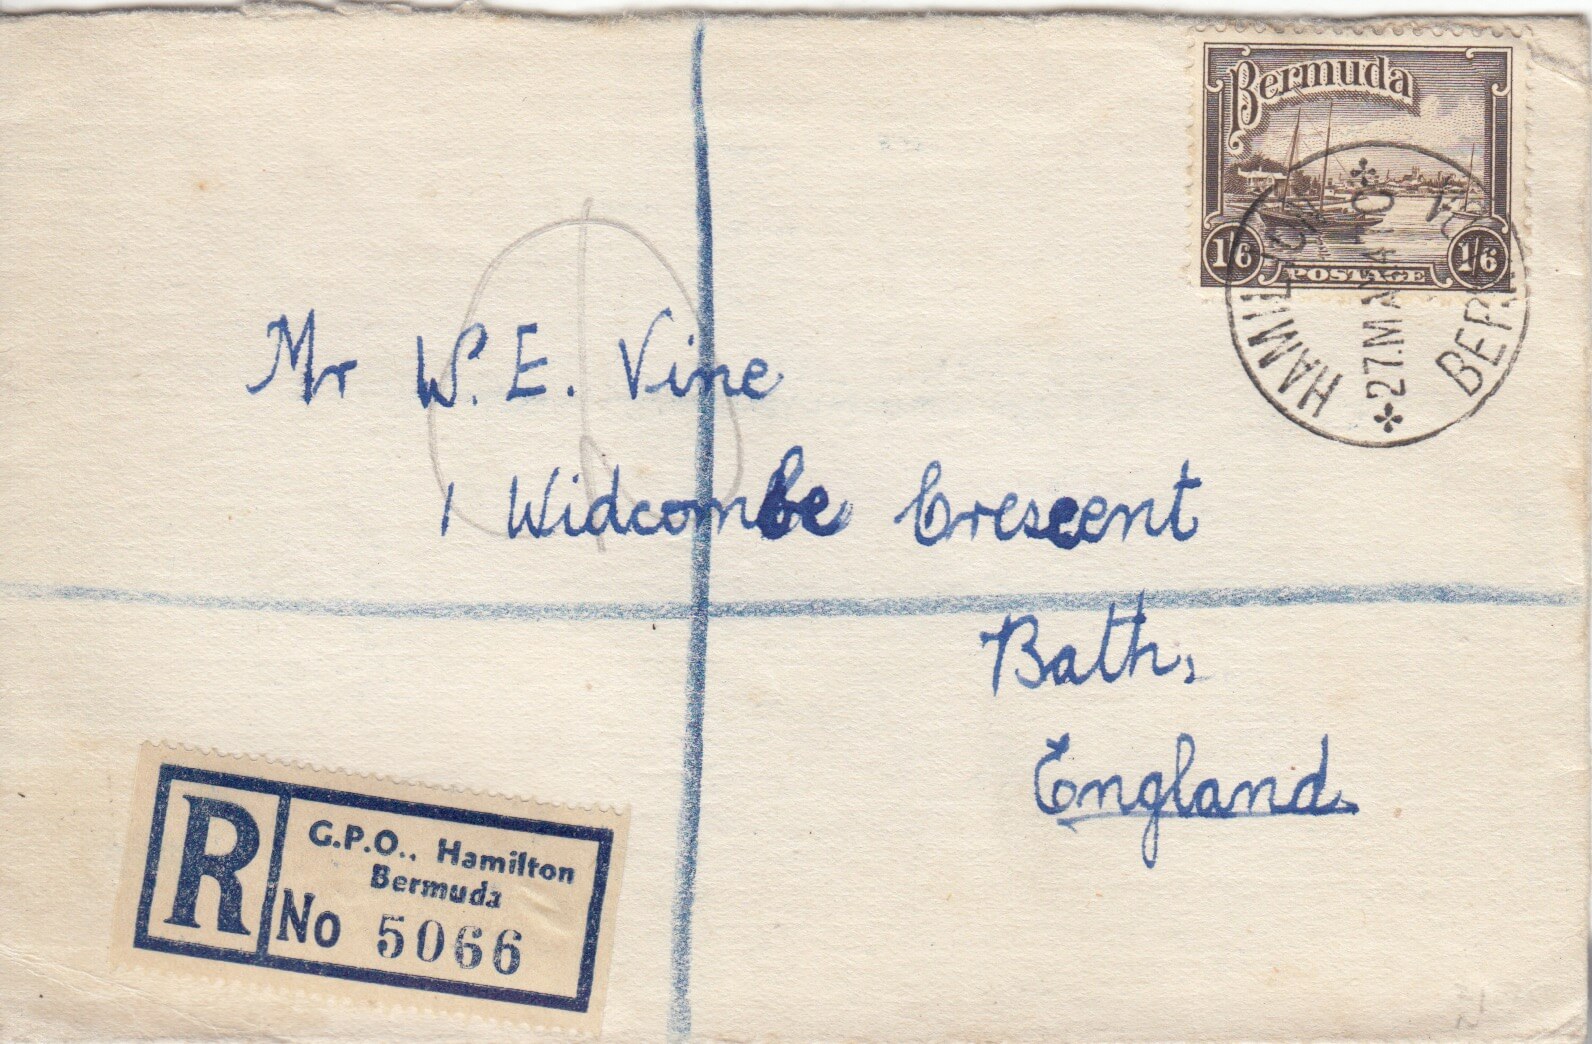 Bermuda
1/6
POSTAGE
1/6
HAMILTON
27.MA
BER
Mr W. E. Vine
1 Widcombe Crescent
Bath,
England.
R
G.P.O., Hamilton
Bermuda
No 5066